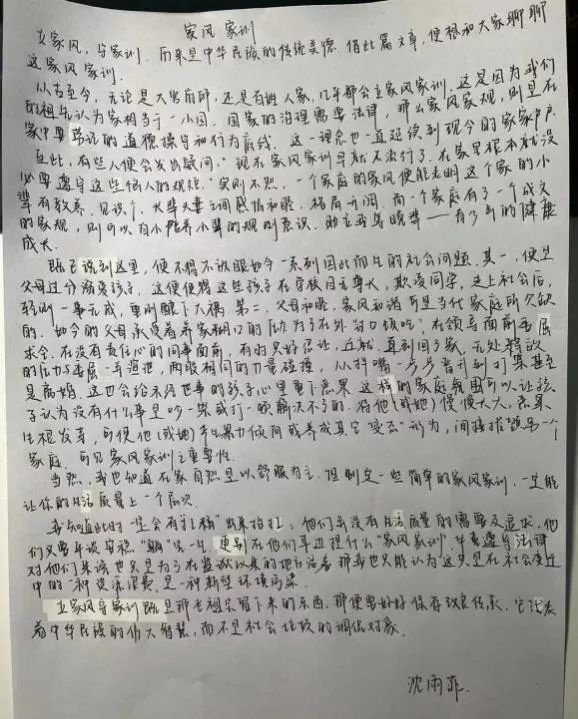 家风家训
立家风,与家训,而来是中华民族的传统美德,借此篇文章,便想和大家聊聊
这家风家训.
从古至今,无论是大富府邸,还是百姓人家,几乎都会立家风家训.这是因为我们
的祖先认为家相当于一小国,国家的治理需要法律,那么家风家规,则是在
家中要常说的道德操守和行为底线.这一理念也一直延续到现今的家家户户.
在此,有些人便会发出疑问:"现在家风家训早就不流行了,在家里根本就没
必要遵守这些俗人的规矩."实则不然,一个家庭的家风便能表明这个家的小
辈有教养、见识,大辈夫妻之间感情和睦、格局开阔.而一个家庭有了一个成文
的家规,则可以自小培养小辈的规则意识,助立再墓晓辈——有了事的健康
成长.
既已说到这里,便不得不提眼如今一系列因此而生的社会问题.其一,便是
父母过分溺爱孩子,这便使得这些孩子在学校目无尊长,欺凌同学,走上社会后,
轻则一事无成,重则酿下大祸.第二,父母和睦,家风和谐可是当代家庭所欠缺
的.如今的父母承受着养家糊口的压力:为了在外"讨口饭吃",在领导面前委屈
求全,在没有责任心的同事面前,有时只好忍让,迁就,直到回了家,无处释放
的压力与委屈一并宣泄,两股相同的力量碰撞,从拌嘴一步步晋升到打架甚至
是离婚.这也会给未经世事的孩子心里埋下恶果.这样的家庭氛围可以让孩
子认为没有什么事是吵一架或打一顿解决不了的.待他(或她)慢慢大大,恶果
生根发芽,可使他(或她)产生暴力倾向或养成其它"变态"行为,间接摧毁另一个
家庭.可见家风家训之重要性.
当然,我也知道在家自然是以舒服为主.但制定一些简单的家风家训,一定能
让你的生活质量上一个层次.
我知道此时一定会有"杠精"出来抬杠:他们并没有生活质量的需要及追求,他
们只要平淡安稳"躺"完一生.更别在他们耳边提什么"家风家训",毕竟遵守法律
对他们来说也只是为了在监狱以来的地方活着.那我也只能认为这只是在社会变迁
中的一种资源浪费,是一种新型环境污染.
立家风守家训既是那老祖宗留下来的东西,那便要好好保存改良传承,它代表
着中华民族的伟大智慧,而不是社会比较的调侃对象.
沈雨菲.